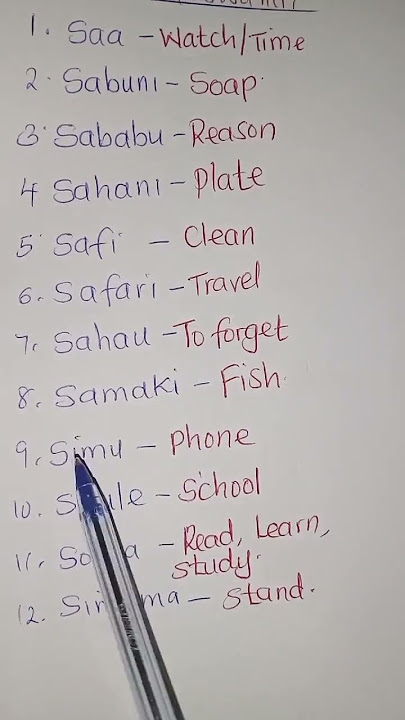 1. Saa – Watch/Time
2. Sabuni – Soap
3. Sababu – Reason
4 Sahani – Plate
5. Safi – Clean
6. Safari – Travel
7. Sahau – To forget
8. Samaki – Fish.
9. Simu – Phone
10. – School
11. – Read, Learn,
study.
12. – Stand.